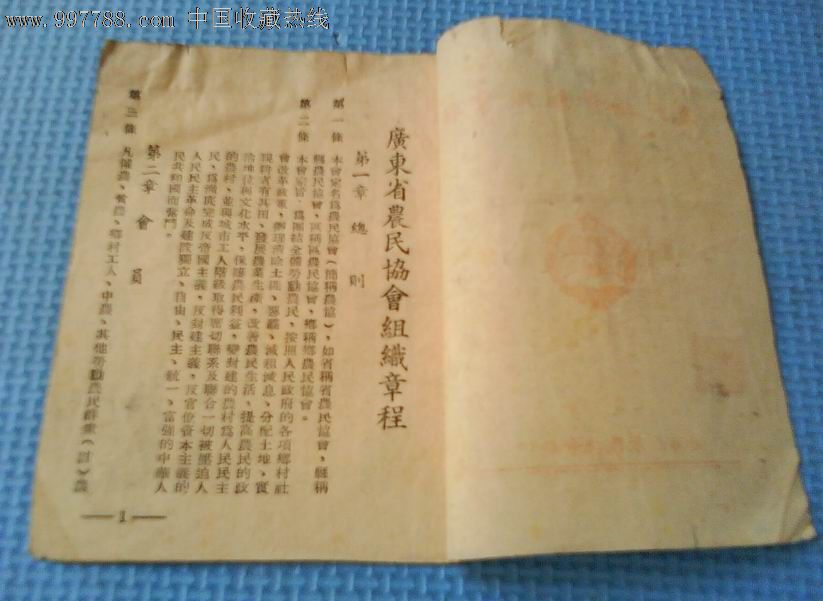 www.997788.com 中国收藏热线
廣東省農民協會組織章程
第一章 總則
第一條 本會定名爲農民協會(簡稱農協),如省稱省農民協會,縣稱
縣農民協會,區稱區農民協會,鄉稱鄉農民協會。
第二條 本會宗旨,爲團結全體勞動農民,按照人民政府的各項鄉村社
會改革政策,辦理清除土匪、惡霸,減租減息、分配土地,實
現耕者有其田,發展農業生產,改善農民生活,提高農民的政
治地位與文化水平,保障農民利益,變封建的農村爲人民民主
的農村,並與城市工人階級取得密切聯系及聯合一切被壓迫人
民,爲澈底完成反帝國主義,反封建主義,反官僚資本主義的
人民民主革命及建設獨立、自由、民主、統一、富強的中華人
民共和國而奮鬥。
第二章 會員
第三條 凡僱農、貧農、鄉村工人、中農、其他勞動農民群衆(註)農
—1—